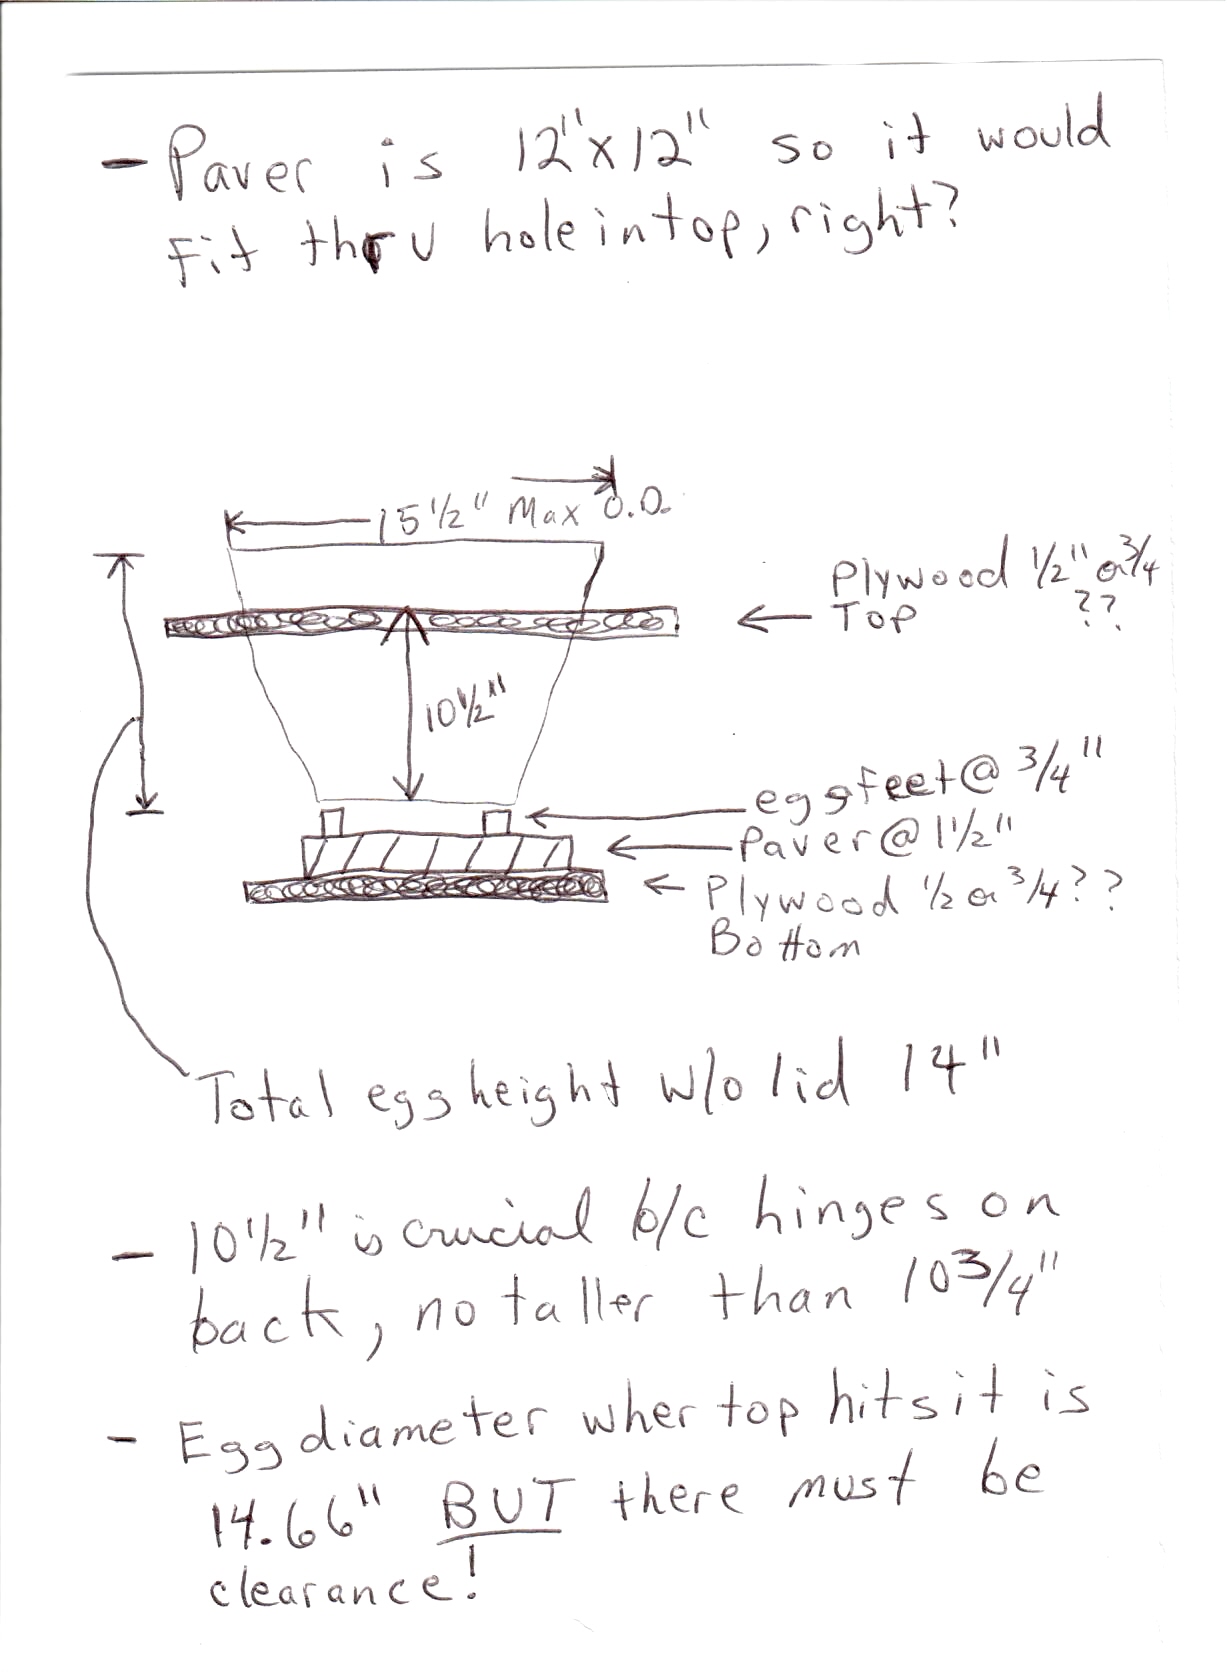 - Paver is 12"x12" so it would
Fit thru hole in top, right?
15 1/2" Max O.D.
Plywood 1/2" or 3/4
Top ??
10 1/2"
egg feet @ 3/4"
Paver @ 1 1/2"
Plywood 1/2 or 3/4??
Bottom
Total egg height w/o lid 14"
- 10 1/2" is crucial b/c hinges on
back, no taller than 10 3/4"
- Egg diameter wher top hits it is
14.66" BUT there must be
clearance!